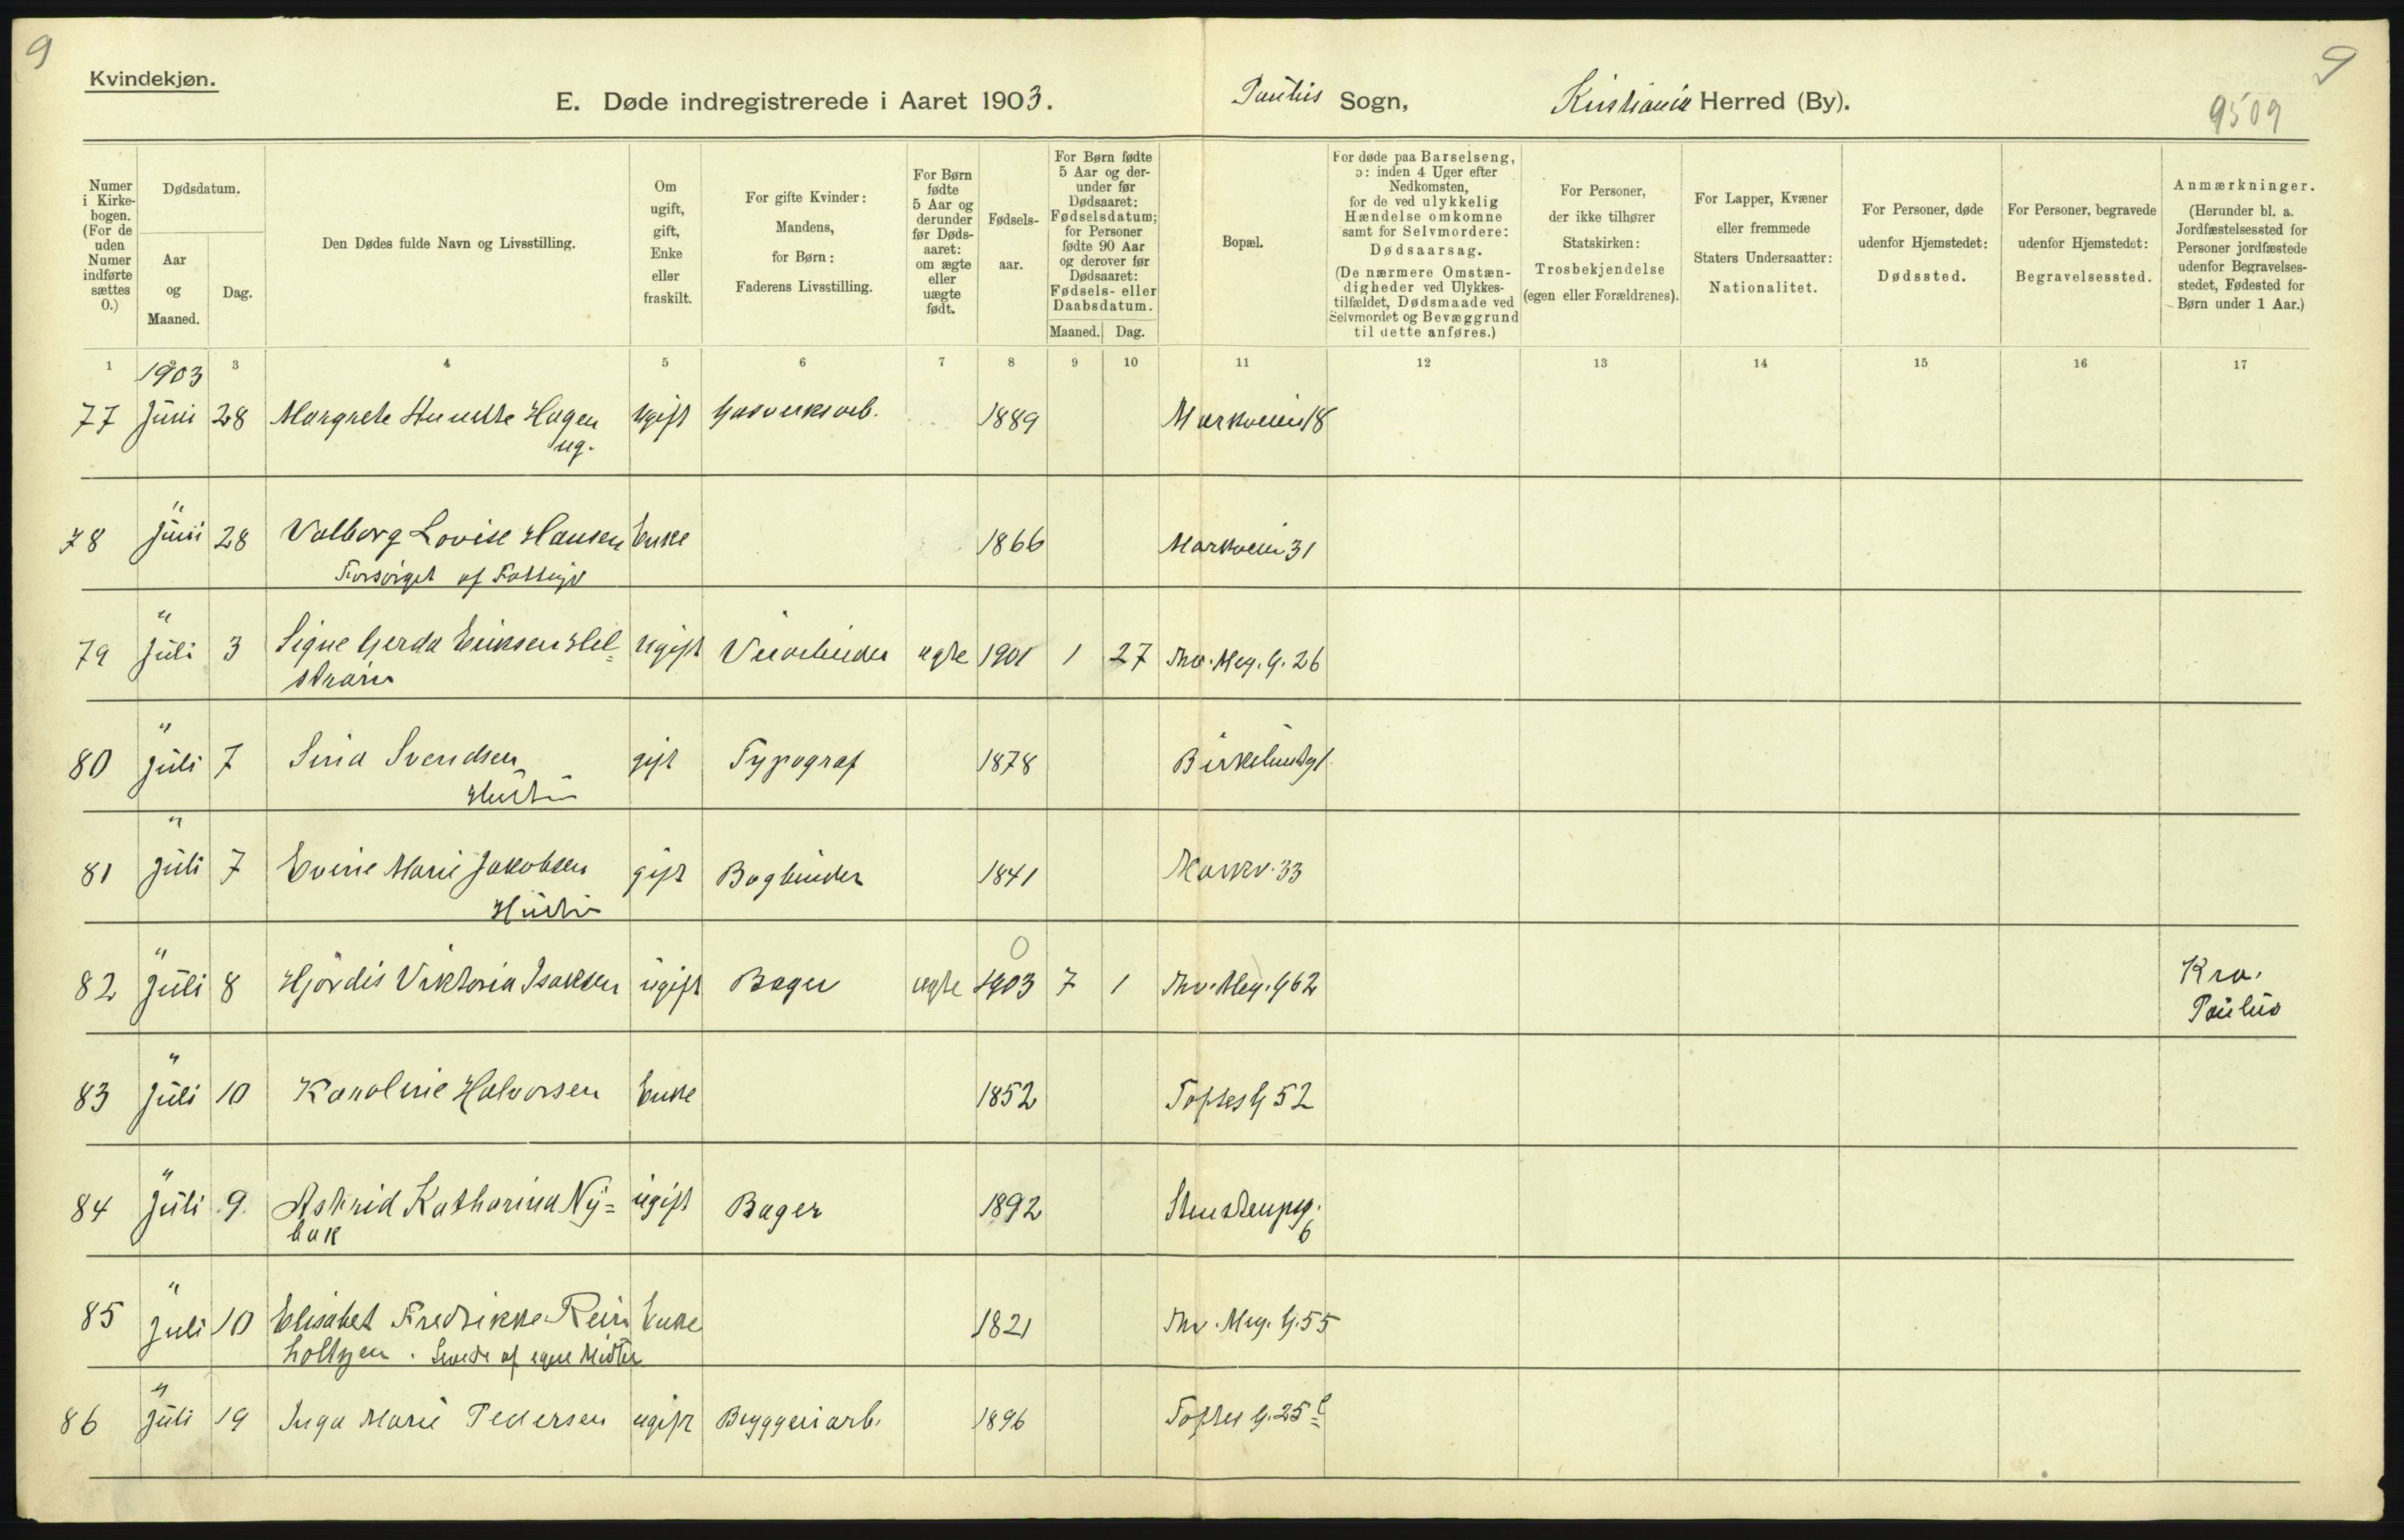 9
9
Kvindekjøn.
E. Døde indregistrerede i Aaret 1903.
Paulus Sogn,
Kristiania Herred (By).
9509
Numer i Kirkebogen. (For de uden Numer indførte sættes 0.)
Dødsdatum.
Aar og Maaned.
Dag.
Den Dødes fulde Navn og Livsstilling.
Om ugift, gift, Enke eller fraskilt.
For gifte Kvinder: Mandens, for Børn: Faderens Livsstilling.
For Børn fødte 5 Aar og derunder før Dødsaaret: om ægte eller uægte født.
Fødselsaar.
For Børn fødte 5 Aar og derunder før Dødsaaret: Fødselsdatum; for Personer fødte 90 Aar og derover før Dødsaaret: Fødsels- eller Daabsdatum.
Maaned.
Dag.
Bopæl.
For døde paa Barselseng, ɔ: inden 4 Uger efter Nedkomsten, for de ved ulykkelig Hændelse omkomne samt for Selvmordere: Dødsaarsag. (De nærmere Omstændigheder ved Ulykkestilfældet, Dødsmaade ved Selvmordet og Bevæggrund til dette anføres.)
For Personer, der ikke tilhører Statskirken: Trosbekjendelse (egen eller Forældrenes).
For Lapper, Kvæner eller fremmede Staters Undersaatter: Nationalitet.
For Personer, døde udenfor Hjemstedet: Dødssted.
For Personer, begravede udenfor Hjemstedet: Begravelsessted.
Anmærkninger. (Herunder bl. a. Jordfæstelsessted for Personer jordfæstede udenfor Begravelsesstedet, Fødested for Børn under 1 Aar.)
1 2 3 4 5 6 7 8 9 10 11 12 13 14 15 16 17
1903
77 Juni 28 Margrete Hagen ugift Gasverksarb. 1889 Markveien 18
ug.
"
78 Juni 28 Valborg Lovise Hansen Enke 1866 Markveien 31
Forsørget af Fattigv
"
79 Juli 3 Signe Gerda Eriksen Hel= ugift ægte 1901 1 27 Thv. Mey. G. 26
strøm
"
80 Juli 7 Sina Svendsen gift Typograf 1878 Birkelundg 1.
Hustru
"
81 Juli 7 Evine Marie Jakobsen gift Bogbinder 1841 Markv. 33
Hustru
"
82 Juli 8 Hjördis Viktoria Isaksen ugift Bager ægte 1903 7 1 Thv. Mey. G 62 Kra.
0
Paulus
"
83 Juli 10 Karoline Halvorsen Enke 1852 Toftes G 52
"
84 Juli 9. Astrid Katharina Ny= ugift Bager 1892 Stenstrupg.
bak
6
"
85 Juli 10 Elisabet Fredrikke Rein Enke 1821 Thv. Mey. G. 55
holtzen. Levede af egne Midler
"
86 Juli 19 Inga Marie Pedersen ugift Bryggeriarb. 1896 Toftes G. 25